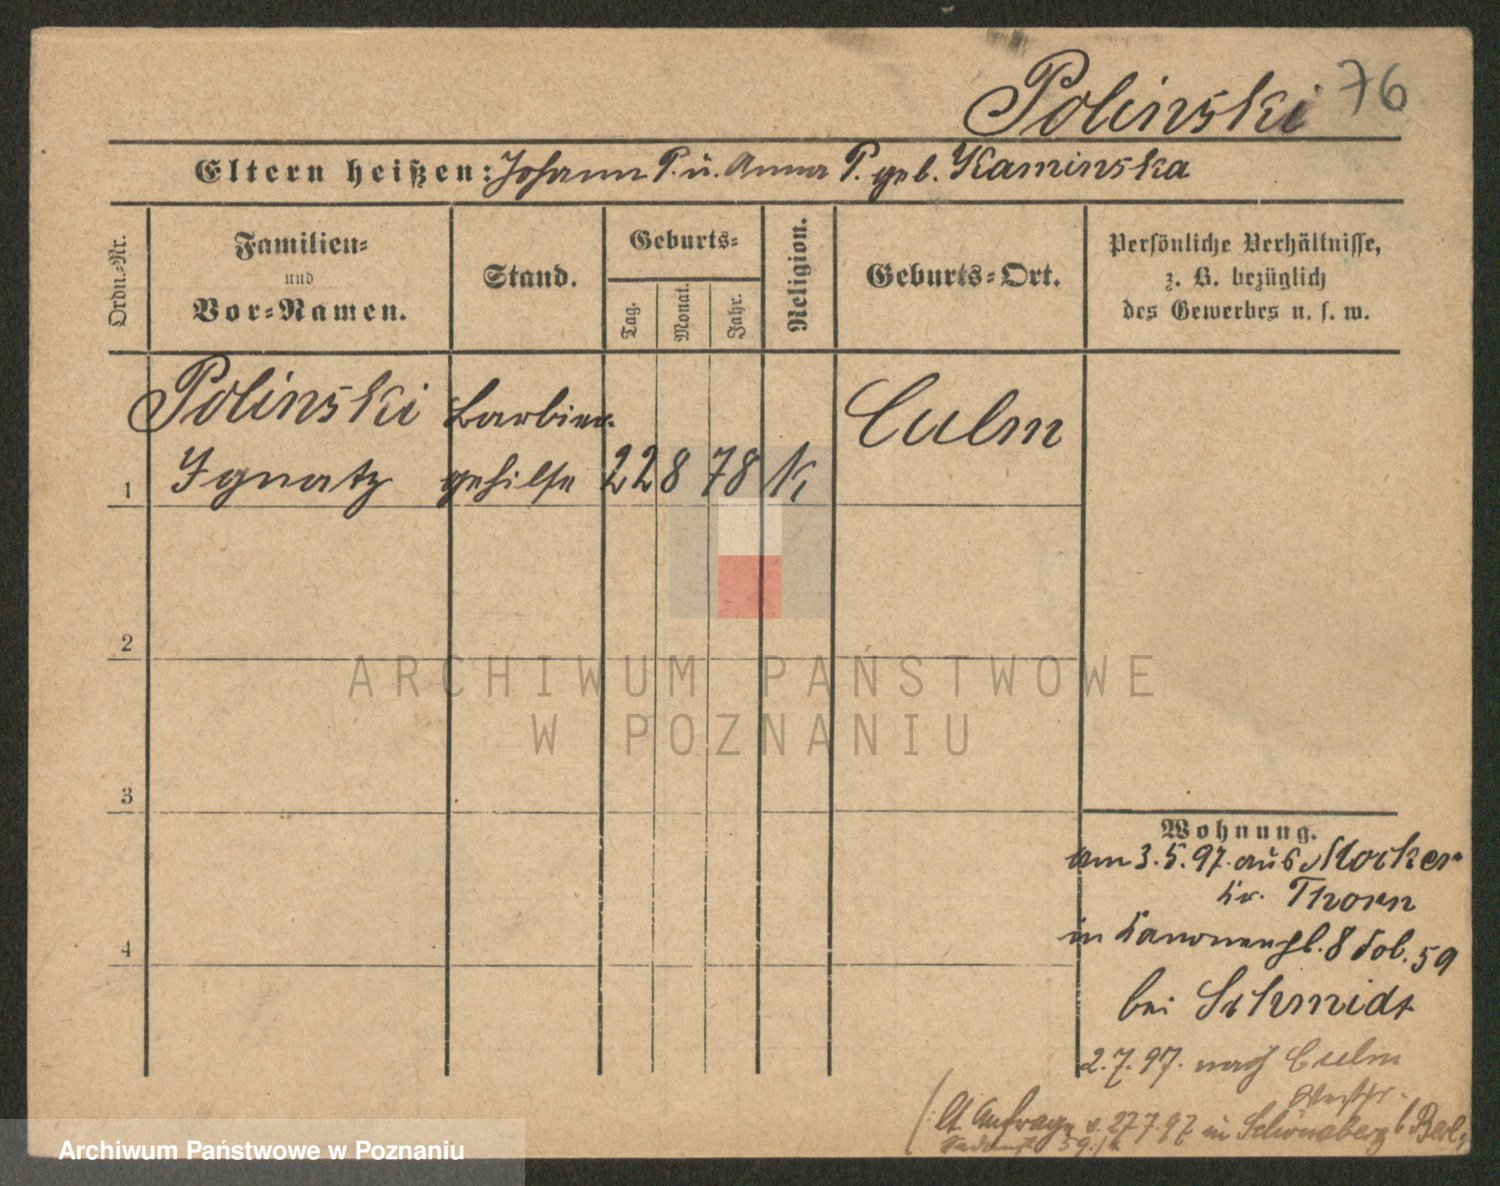 Polinski 76
Eltern heißen: Johann P. u. Anna P. geb. Kaminska
Ordn.-Nr.
Familien-
und
Vor-Namen.
Stand.
Geburts-
Tag.
Monat.
Jahr.
Religion.
Geburts-Ort.
Persönliche Verhältnisse,
z. B. bezüglich
des Gewerbes u. s. w.
Polinski Barbier- Culm
1 Ignatz gehilfe 22 8 78 K
2
3
4
Wohnung.
am 3.5.97. aus Mocker
Kr. Thorn
in Kanonenpl. 8 Fol. 59
bei Schmidt
2.7.97. nach Culm
Westpr.
(lt Anfrage v. 27 7 97 in Schöneberg b Berl.
ARCHIWUM PAŃSTWOWE
W POZNANIU
Archiwum Państwowe w Poznaniu